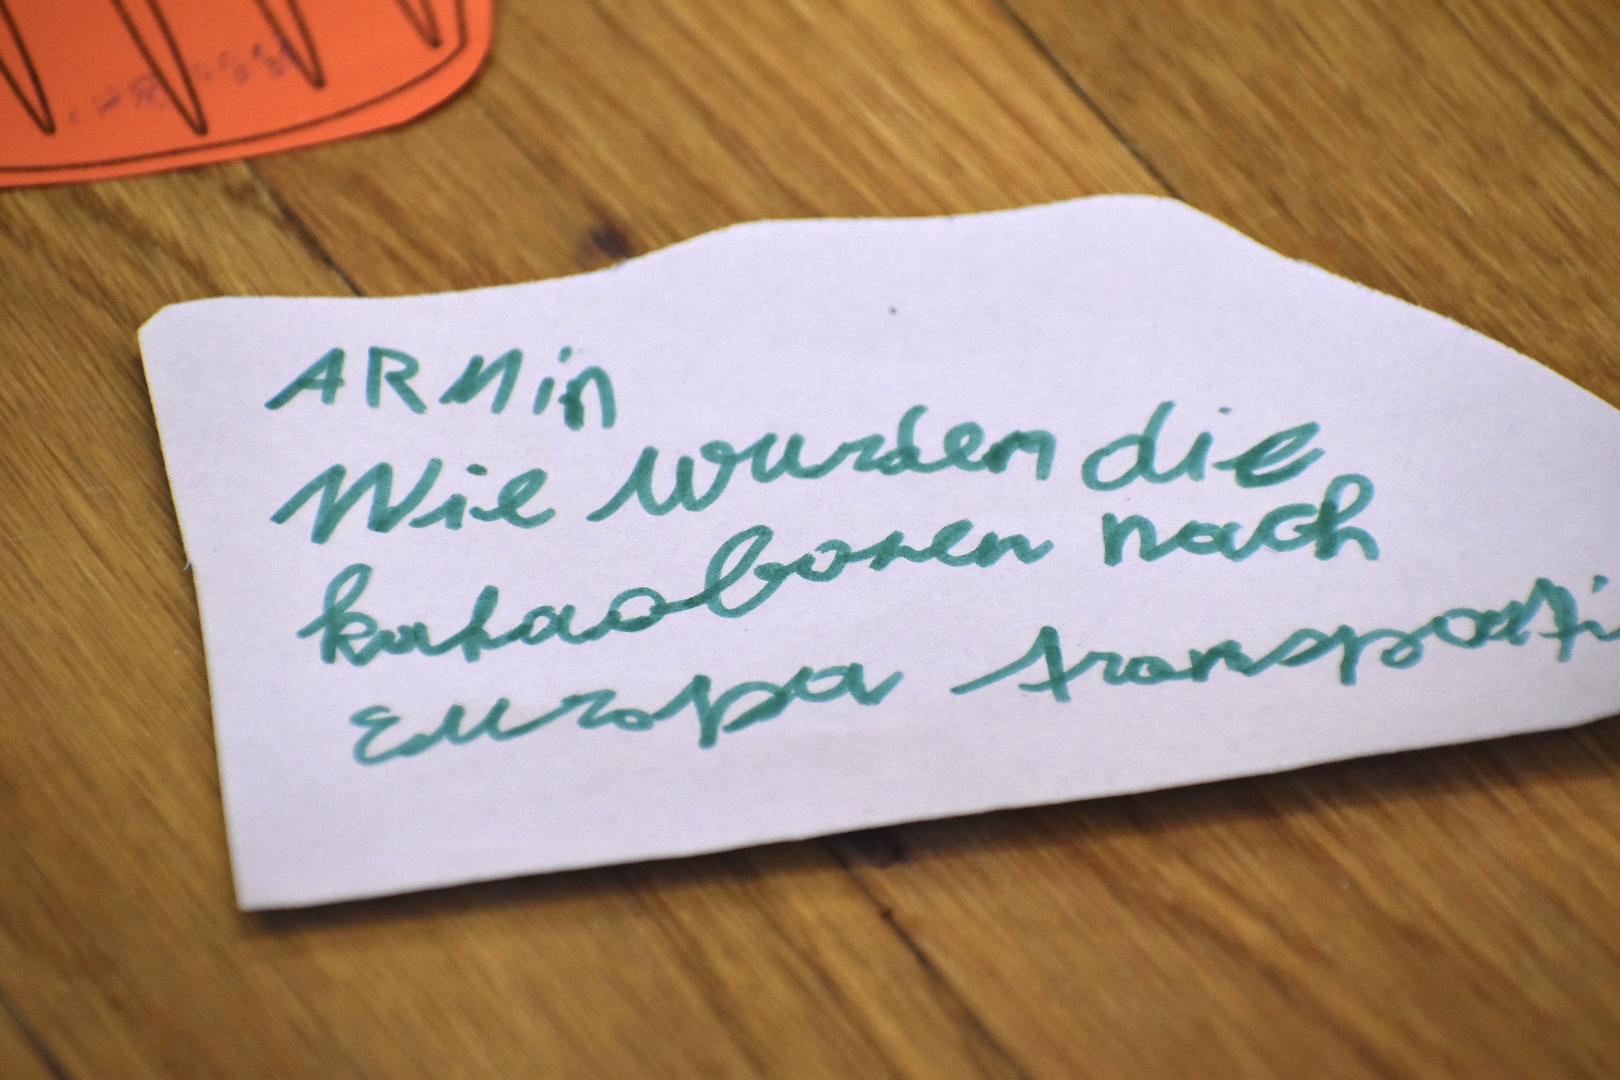 ARMin
Wie wurden die
kakaobonen nach
Europa transporti